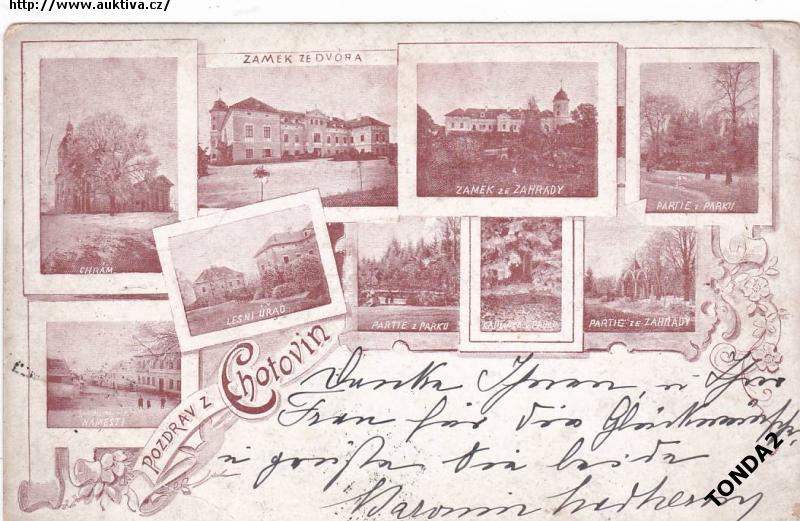 http://www.auktiva.cz/
ZÁMEK ZE DVORA
ZÁMEK ZE ZAHRADY
PARTIE Z PARKU
CHRÁM
LESNÍ ÚŘAD
PARTIE Z PARKU
PARTIE ZE ZAHRADY
NÁMĚSTÍ
POZDRAV Z Chotovin
Danke Ihnen, u Ihrer
Frau für die Glückwünsche
u grüße Sie beide
TONDA2